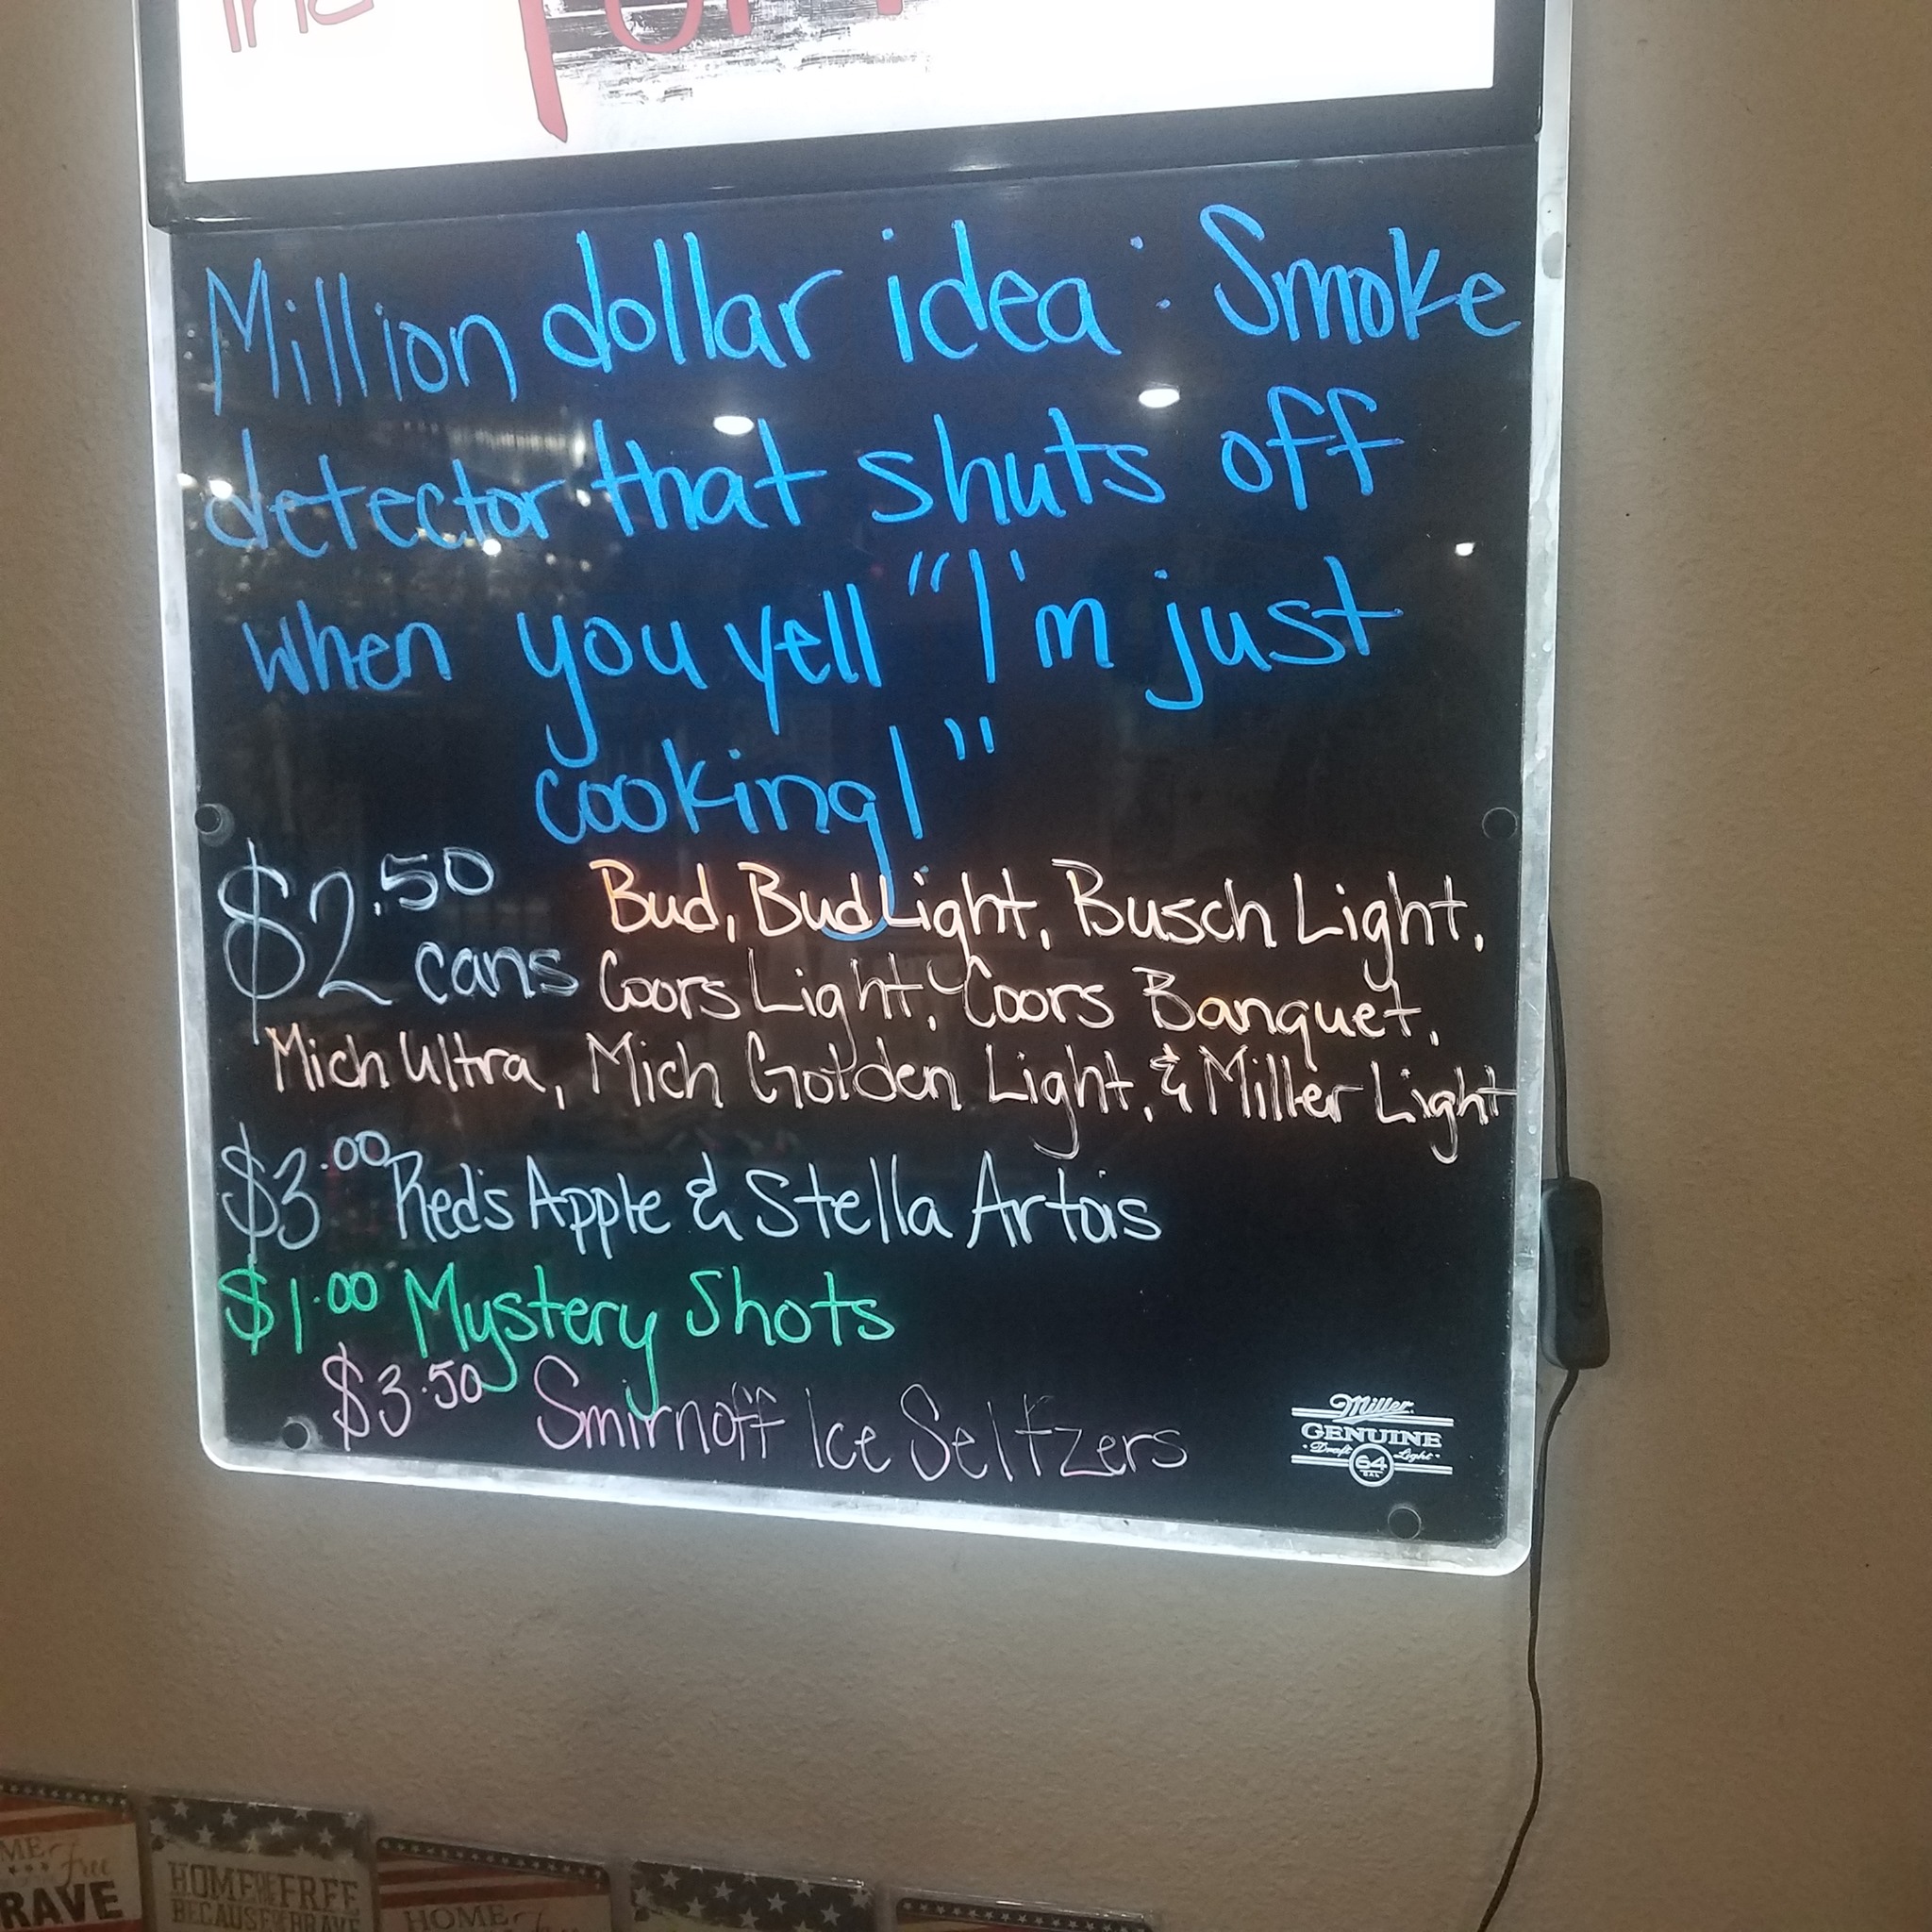 the
Million dollar idea: Smoke
detector that shuts off
when you yell "I'm just
cooking!"
$2.50 cans Bud, Bud Light, Busch Light,
Coors Light, Coors Banquet,
Mich Ultra, Mich Golden Light, & Miller Light
$3.00 Red's Apple & Stella Artois
$1.00 Mystery Shots
$3.50 Smirnoff Ice Seltzers
Miller
GENUINE
Draft Light
64
CAL
HOME OF THE FREE
BECAUSE OF THE BRAVE
HOME